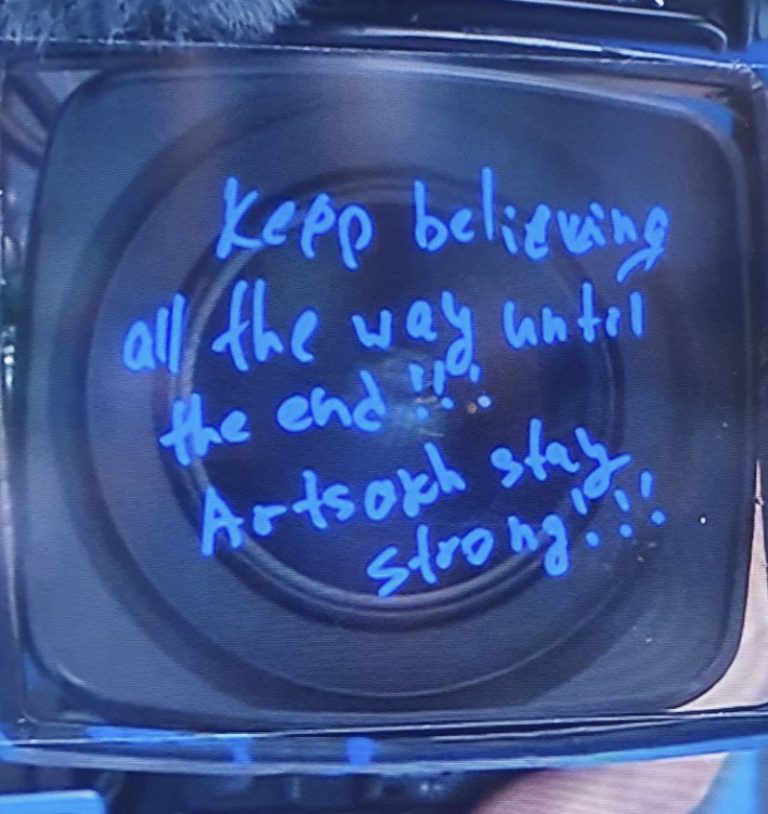 Kepp believing
all the way until
the end!!!
Artsakh stay
strong!!!